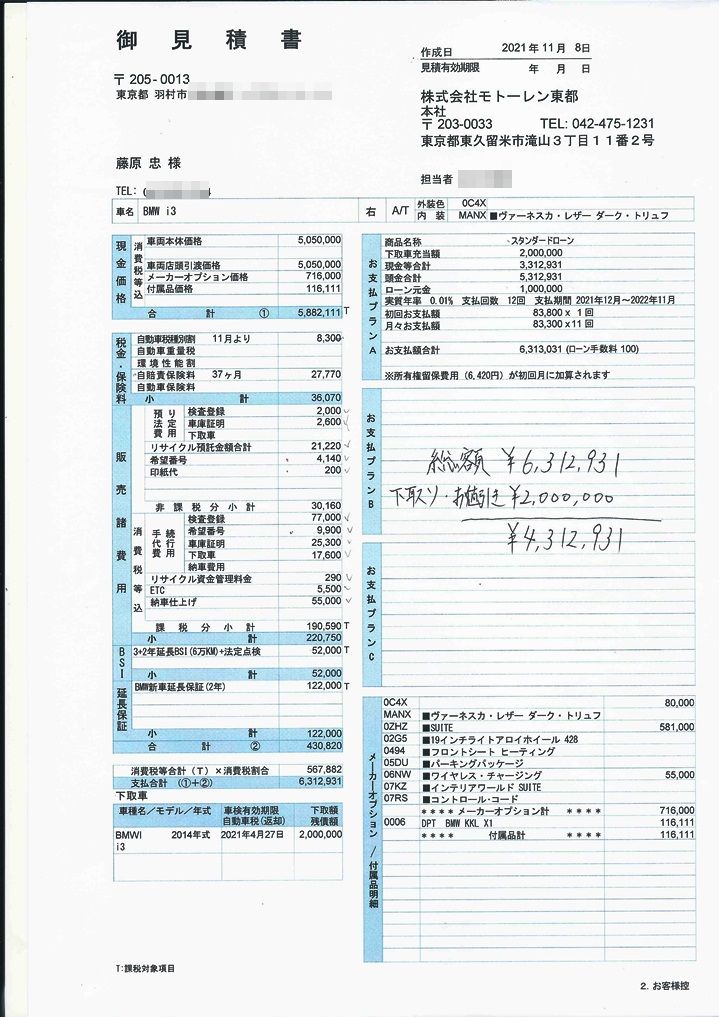 御見積書
作成日 2021年11月 8日
見積有効期限 年 月 日
〒205-0013
東京都 羽村市
株式会社モトーレン東都
本社
〒203-0033 TEL: 042-475-1231
東京都東久留米市滝山3丁目11番2号
藤原 忠 様
担当者
TEL:
車名 BMW i3 右 A/T 外装色 0C4X
内装 MANX ■ヴァーネスカ・レザー ダーク・トリュフ
現金価格
消費税等込
車両本体価格 5,050,000
車両店頭引渡価格 5,050,000
メーカーオプション価格 716,000
付属品価格 116,111
合計 ① 5,882,111 T
税金・保険料
自動車税種別割 11月より 8,300
自動車重量税
環境性能割
自賠責保険料 37ヶ月 27,770
自動車保険料
小計 36,070
販売諸費用
預り法定費用
検査登録 2,000
車庫証明 2,600
下取車
リサイクル預託金額合計 21,220
希望番号 4,140
印紙代 200
非課税分小計 30,160
消費税等込
手続代行費用
検査登録 77,000
希望番号 9,900
車庫証明 25,300
下取車 17,600
納車費用
リサイクル資金管理料金 290
ETC 5,500
納車仕上げ 55,000
課税分小計 190,590 T
小計 220,750
BSI
3+2年延長BSI(6万KM)+法定点検 52,000 T
小計 52,000
延長保証
BMW新車延長保証(2年) 122,000 T
小計 122,000
合計 ② 430,820
消費税等合計(T)×消費税割合 567,882
支払合計 (①+②) 6,312,931
下取車
車種名/モデル/年式 車検有効期限 自動車税(返却) 下取額 残債額
BMWI 2014年式 2021年4月27日 2,000,000
i3
T:課税対象項目
お支払プランA
商品名称 スタンダードローン
下取車充当額 2,000,000
現金等合計 3,312,931
頭金合計 5,312,931
ローン元金 1,000,000
実質年率 0.01% 支払回数 12回 支払期間 2021年12月~2022年11月
初回お支払額 83,800 x 1回
月々お支払額 83,300 x 11回
お支払額合計 6,313,031 (ローン手数料 100)
※所有権留保費用(6,420円)が初回月に加算されます
お支払プランB
総額 ¥6,312,931
下取ソ・お値引き ¥2,000,000
¥4,312,931
お支払プランC
メーカーオプション/付属品明細
0C4X 80,000
MANX ■ヴァーネスカ・レザー ダーク・トリュフ
0ZHZ ■SUITE 581,000
02G5 ■19インチライトアロイホイール 428
0494 ■フロントシート ヒーティング
05DU ■パーキングパッケージ
06NW ■ワイヤレス・チャージング 55,000
07KZ ■インテリアワールド SUITE
07RS ■コントロール・コード
**** メーカーオプション計 **** 716,000
0006 DPT BMW KKL X1 116,111
**** 付属品計 **** 116,111
2. お客様控